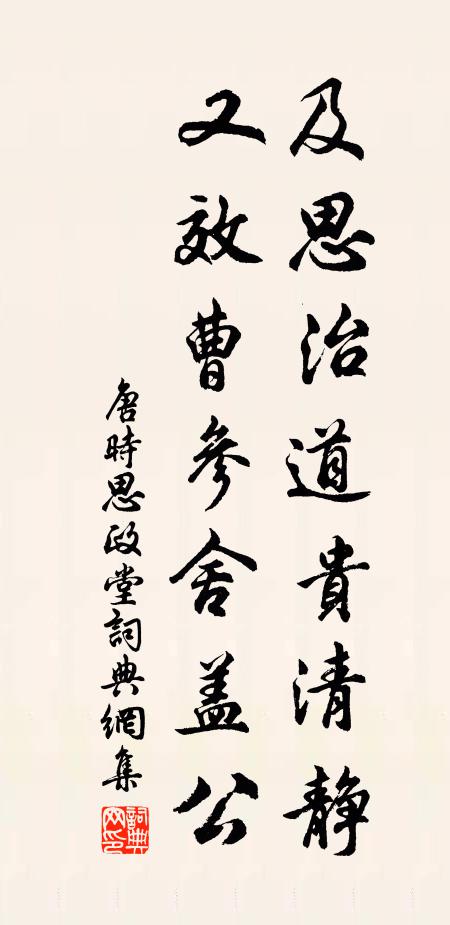 及思治道貴清静
又效曹參舍盖公
唐時思政堂詞典網集
詞典网印